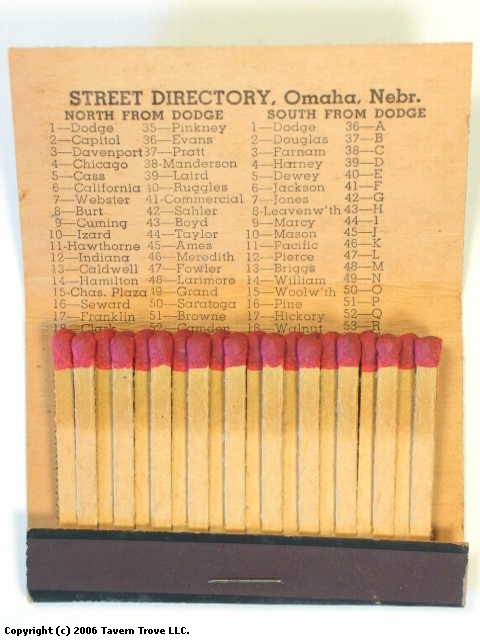 STREET DIRECTORY, Omaha, Nebr.
NORTH FROM DODGE
1—Dodge 35—Pinkney
2—Capitol 36—Evans
3—Davenport 37—Pratt
4—Chicago 38-Manderson
5—Cass 39—Laird
6—California 40—Ruggles
7—Webster 41-Commercial
8—Burt 42—Sahler
9—Cuming 43—Boyd
10—Izard 44—Taylor
11-Hawthorne 45—Ames
12—Indiana 46—Meredith
13—Caldwell 47—Fowler
14—Hamilton 48—Larimore
15-Chas. Plaza 49—Grand
16—Seward 50—Saratoga
17—Franklin 51—Browne
18—Clark 52—Camden
SOUTH FROM DODGE
1—Dodge 36—A
2—Douglas 37—B
3—Farnam 38—C
4—Harney 39—D
5—Dewey 40—E
6—Jackson 41—F
7—Jones 42—G
8-Leavenw'th 43—H
9—Marcy 44—I
10—Mason 45—J
11—Pacific 46—K
12—Pierce 47—L
13—Briggs 48—M
14—William 49—N
15—Woolw'th 50—O
16—Pine 51—P
17—Hickory 52—Q
18—Walnut 53—R
Copyright (c) 2006 Tavern Trove LLC.